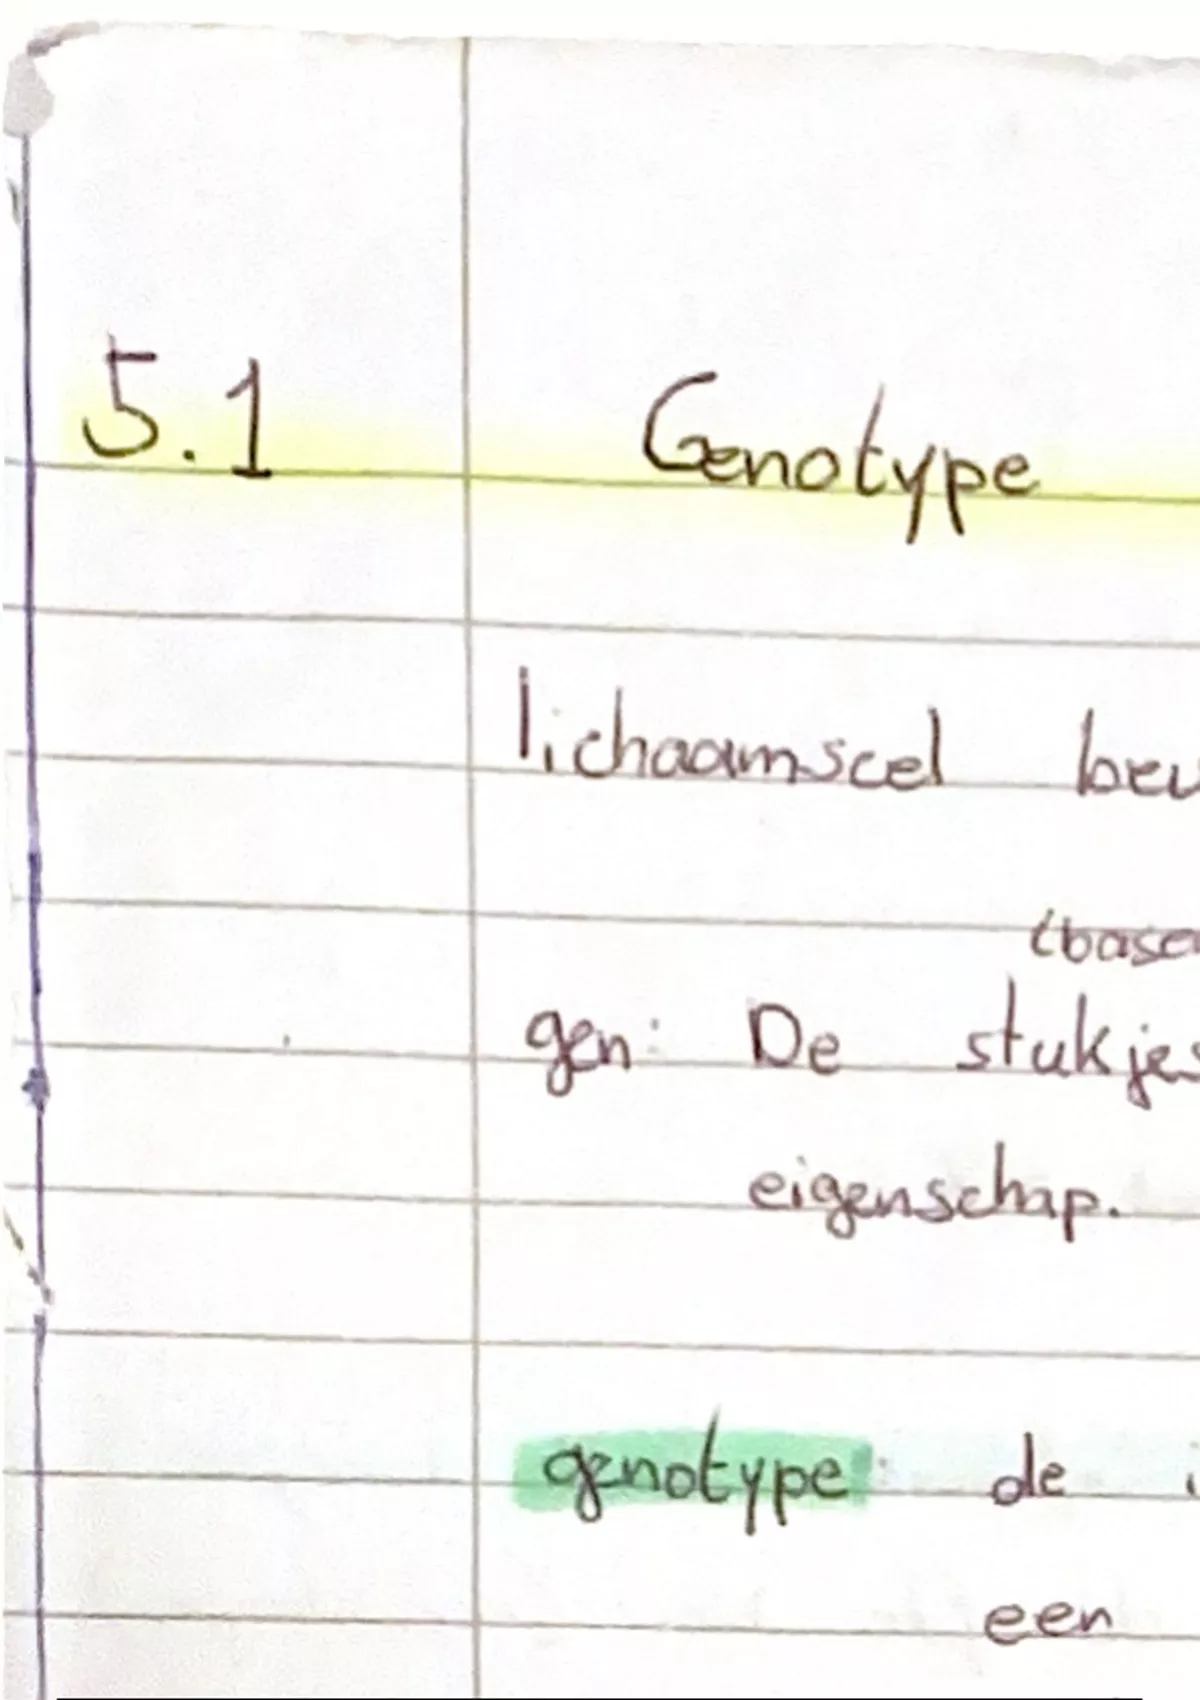 5.1 Genotype
lichaamscel
gen: De stukjes
eigenschap.
genotype: de
een